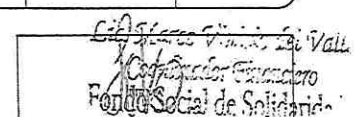 Lic. Marco Vinicio del Valle
Coordinador Financiero
Fondo Social de Solidarid